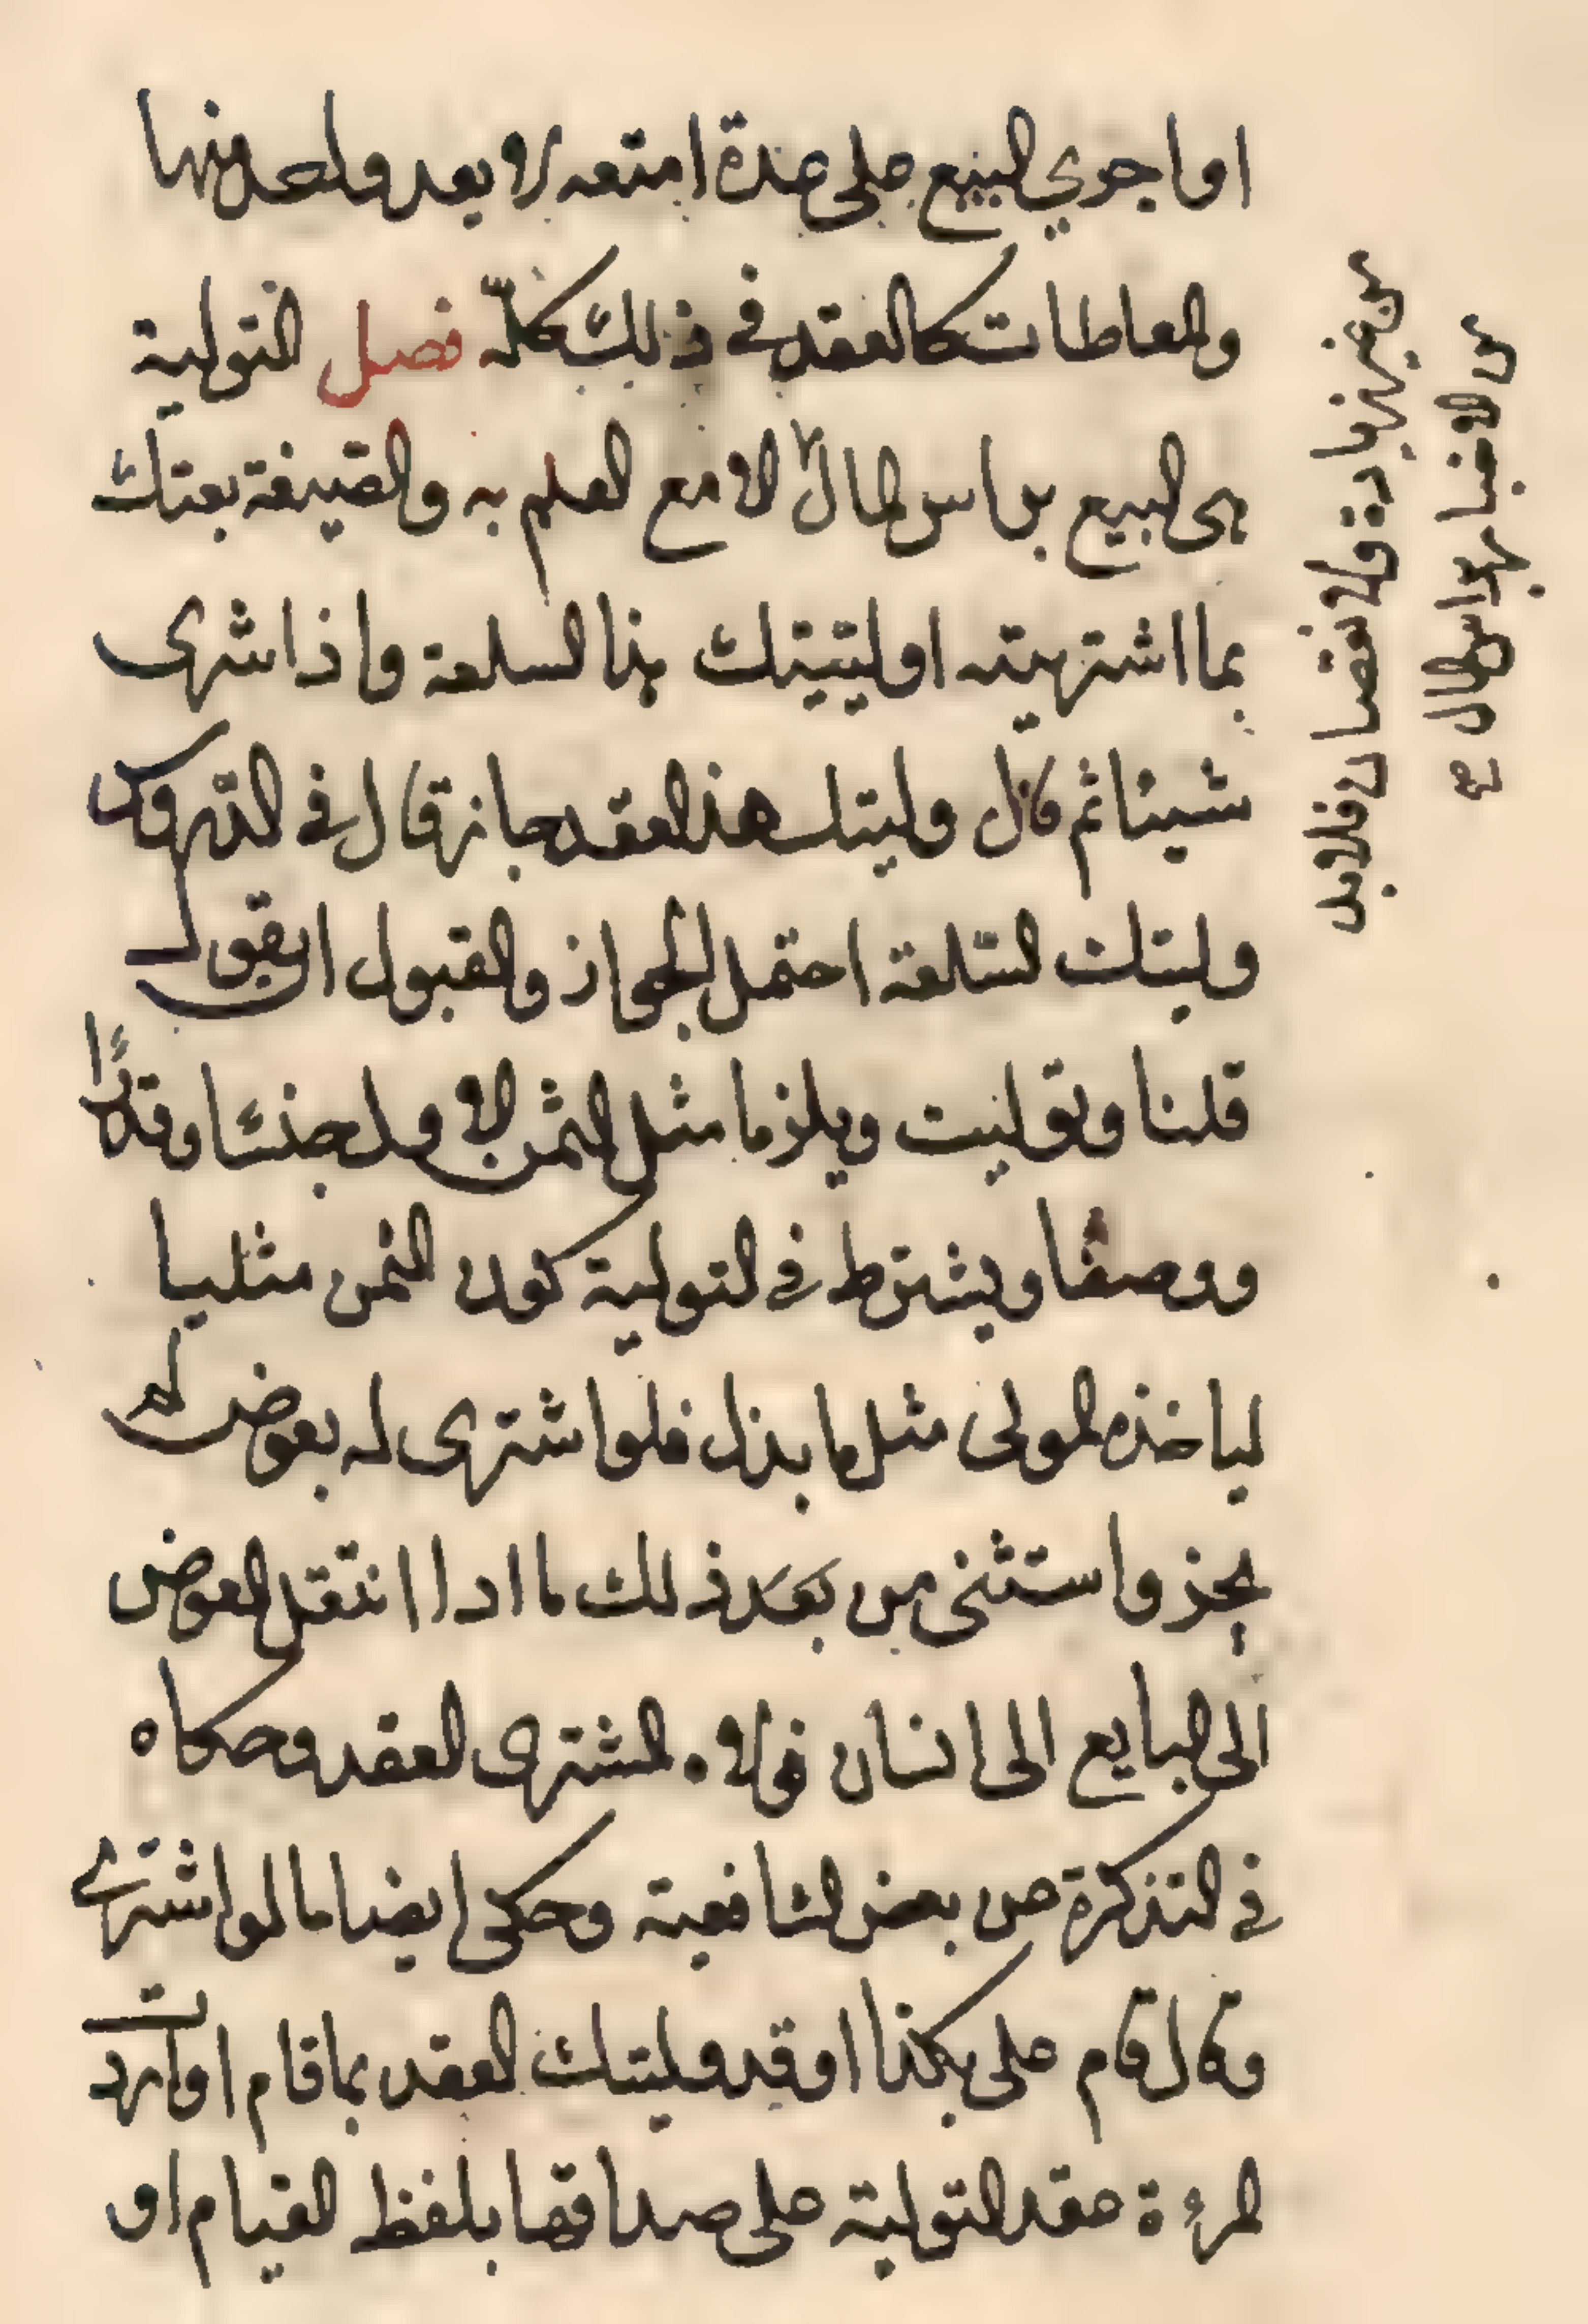 او اجري البيع على عدة امتعه لا يعد واحد منها
والمعاطات كالعقد في ذلك كلّه فصل التولية
هى البيع براس المال لا مع العلم به والصيغة بعتك
بما اشتريته او ليتيتك هذا السلعة واذا شرى
شيئا ثم قال وليتك هذا العقد جاز قال في الدّروس
وليتك السّلعة احتمل الجواز والقبول ان يقول
قلنا وتوليت ويلزما مثل الثمن الاول جنسًا وقدرًا
ووصفًا ويشترط في التولية كون الثمن مثليا
لياخذ المولى مثل ما بذل فلو اشترى له بعوض لم
يجز واستثنى من بعد ذلك ما اذا انتقل العوض
الى البايع الى انسان فولاه المشترى العقد وحكاه
في التذكرة عن بعض الشافعية وحكى ايضا ما لو اشترى
وقال قام على بكذا او قد وليتك العقد بما قام او ارادت
المرءة عقد التولية على صداقها بلفظ القيام او
من غير زيادة ولا نقصان فلا بد
من الاخبار براس المال صح